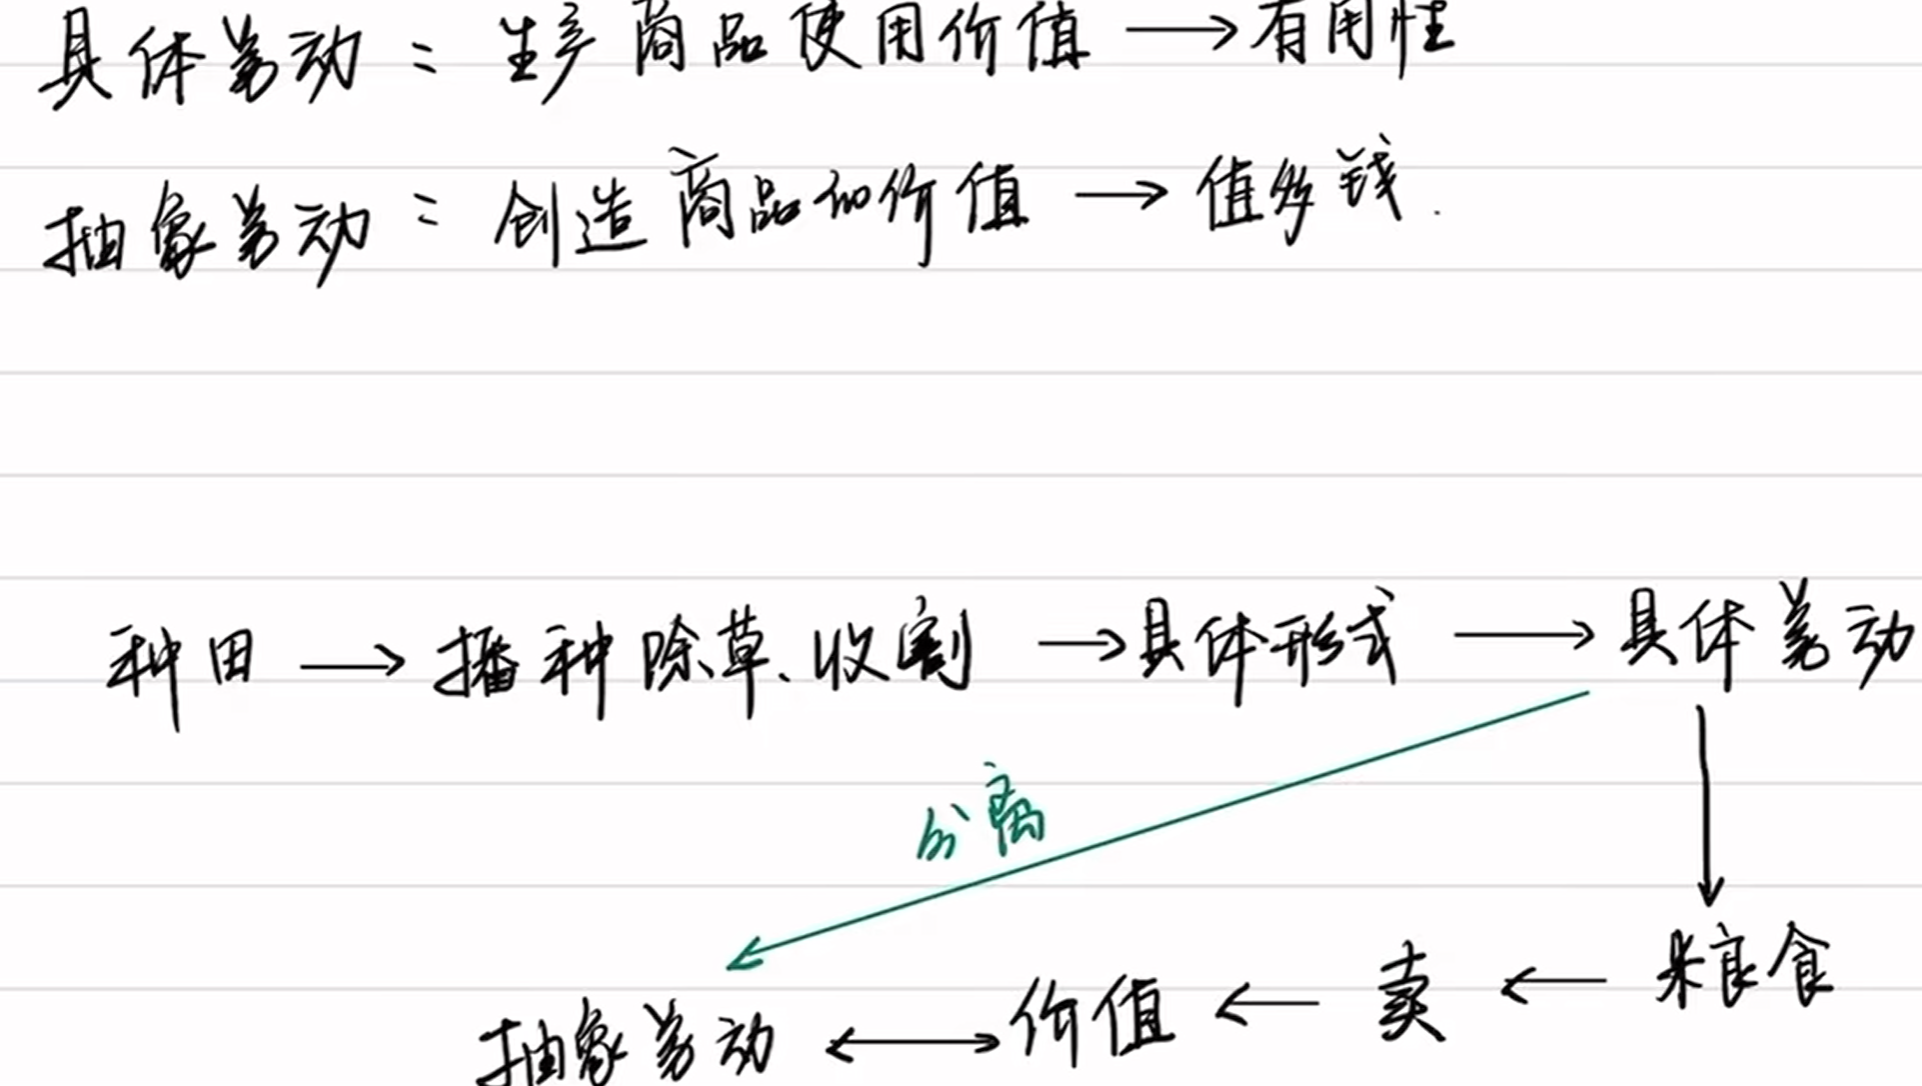 具体劳动：生产商品使用价值→有用性
抽象劳动：创造商品的价值→值多钱.
种田→播种除草、收割→具体形式→具体劳动
分离
抽象劳动↔价值←卖←粮食